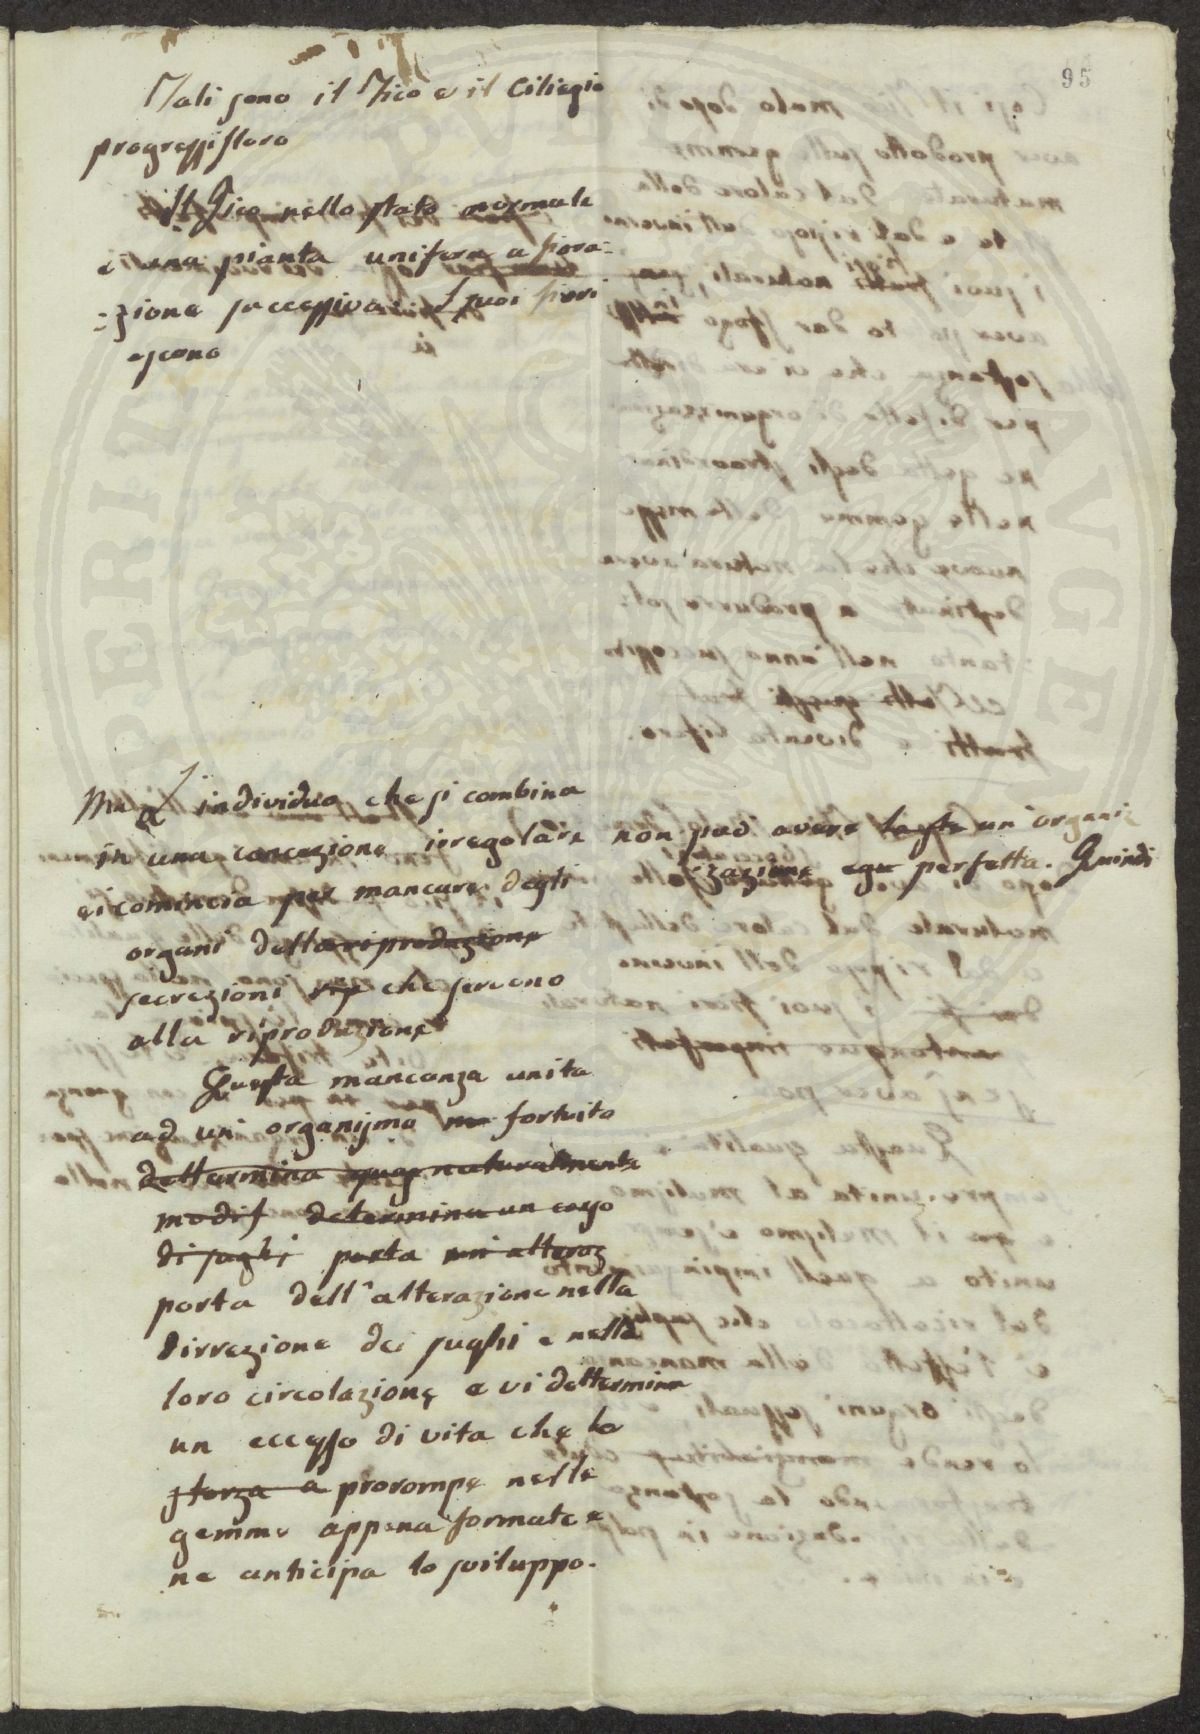 95
Tali sono il Fico e il Ciliegio
progressifloro
Il Fico nello stato normale
è una pianta unifera a fiora=
=zione successiva. I suoi fiori
escono
Ma l'individuo che si combina
in una concezione irregolare non può avere un organi
zazione egu perfetta. Quindi
ei comincia per mancare degli
organi della riproduzione
secrezioni rip che servono
alla riproduzione
Questa mancanza unita
ad un organismo fortuito
dettermina quasi naturalmente
modif determina un corso
di sughi porta un alteraz
porta dell'alterazione nella
dirrezione dei sughi e nella
loro circolazione e vi dettermina
un eccesso di vita che lo
sforza a prorompe nelle
gemme appena formate e
ne anticipa lo sviluppo.